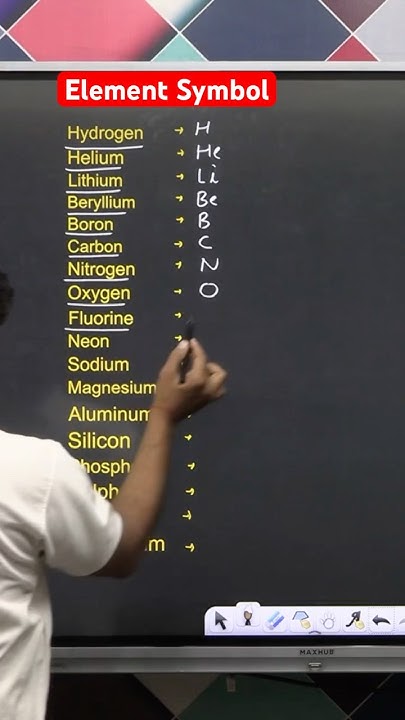 Element Symbol
Hydrogen → H
Helium → He
Lithium → Li
Beryllium → Be
Boron → B
Carbon → C
Nitrogen → N
Oxygen → O
Fluorine →
Neon →
Sodium
Magnesium
Aluminum
Silicon →
Phosph →
lph →
→
m →
MAXHUB